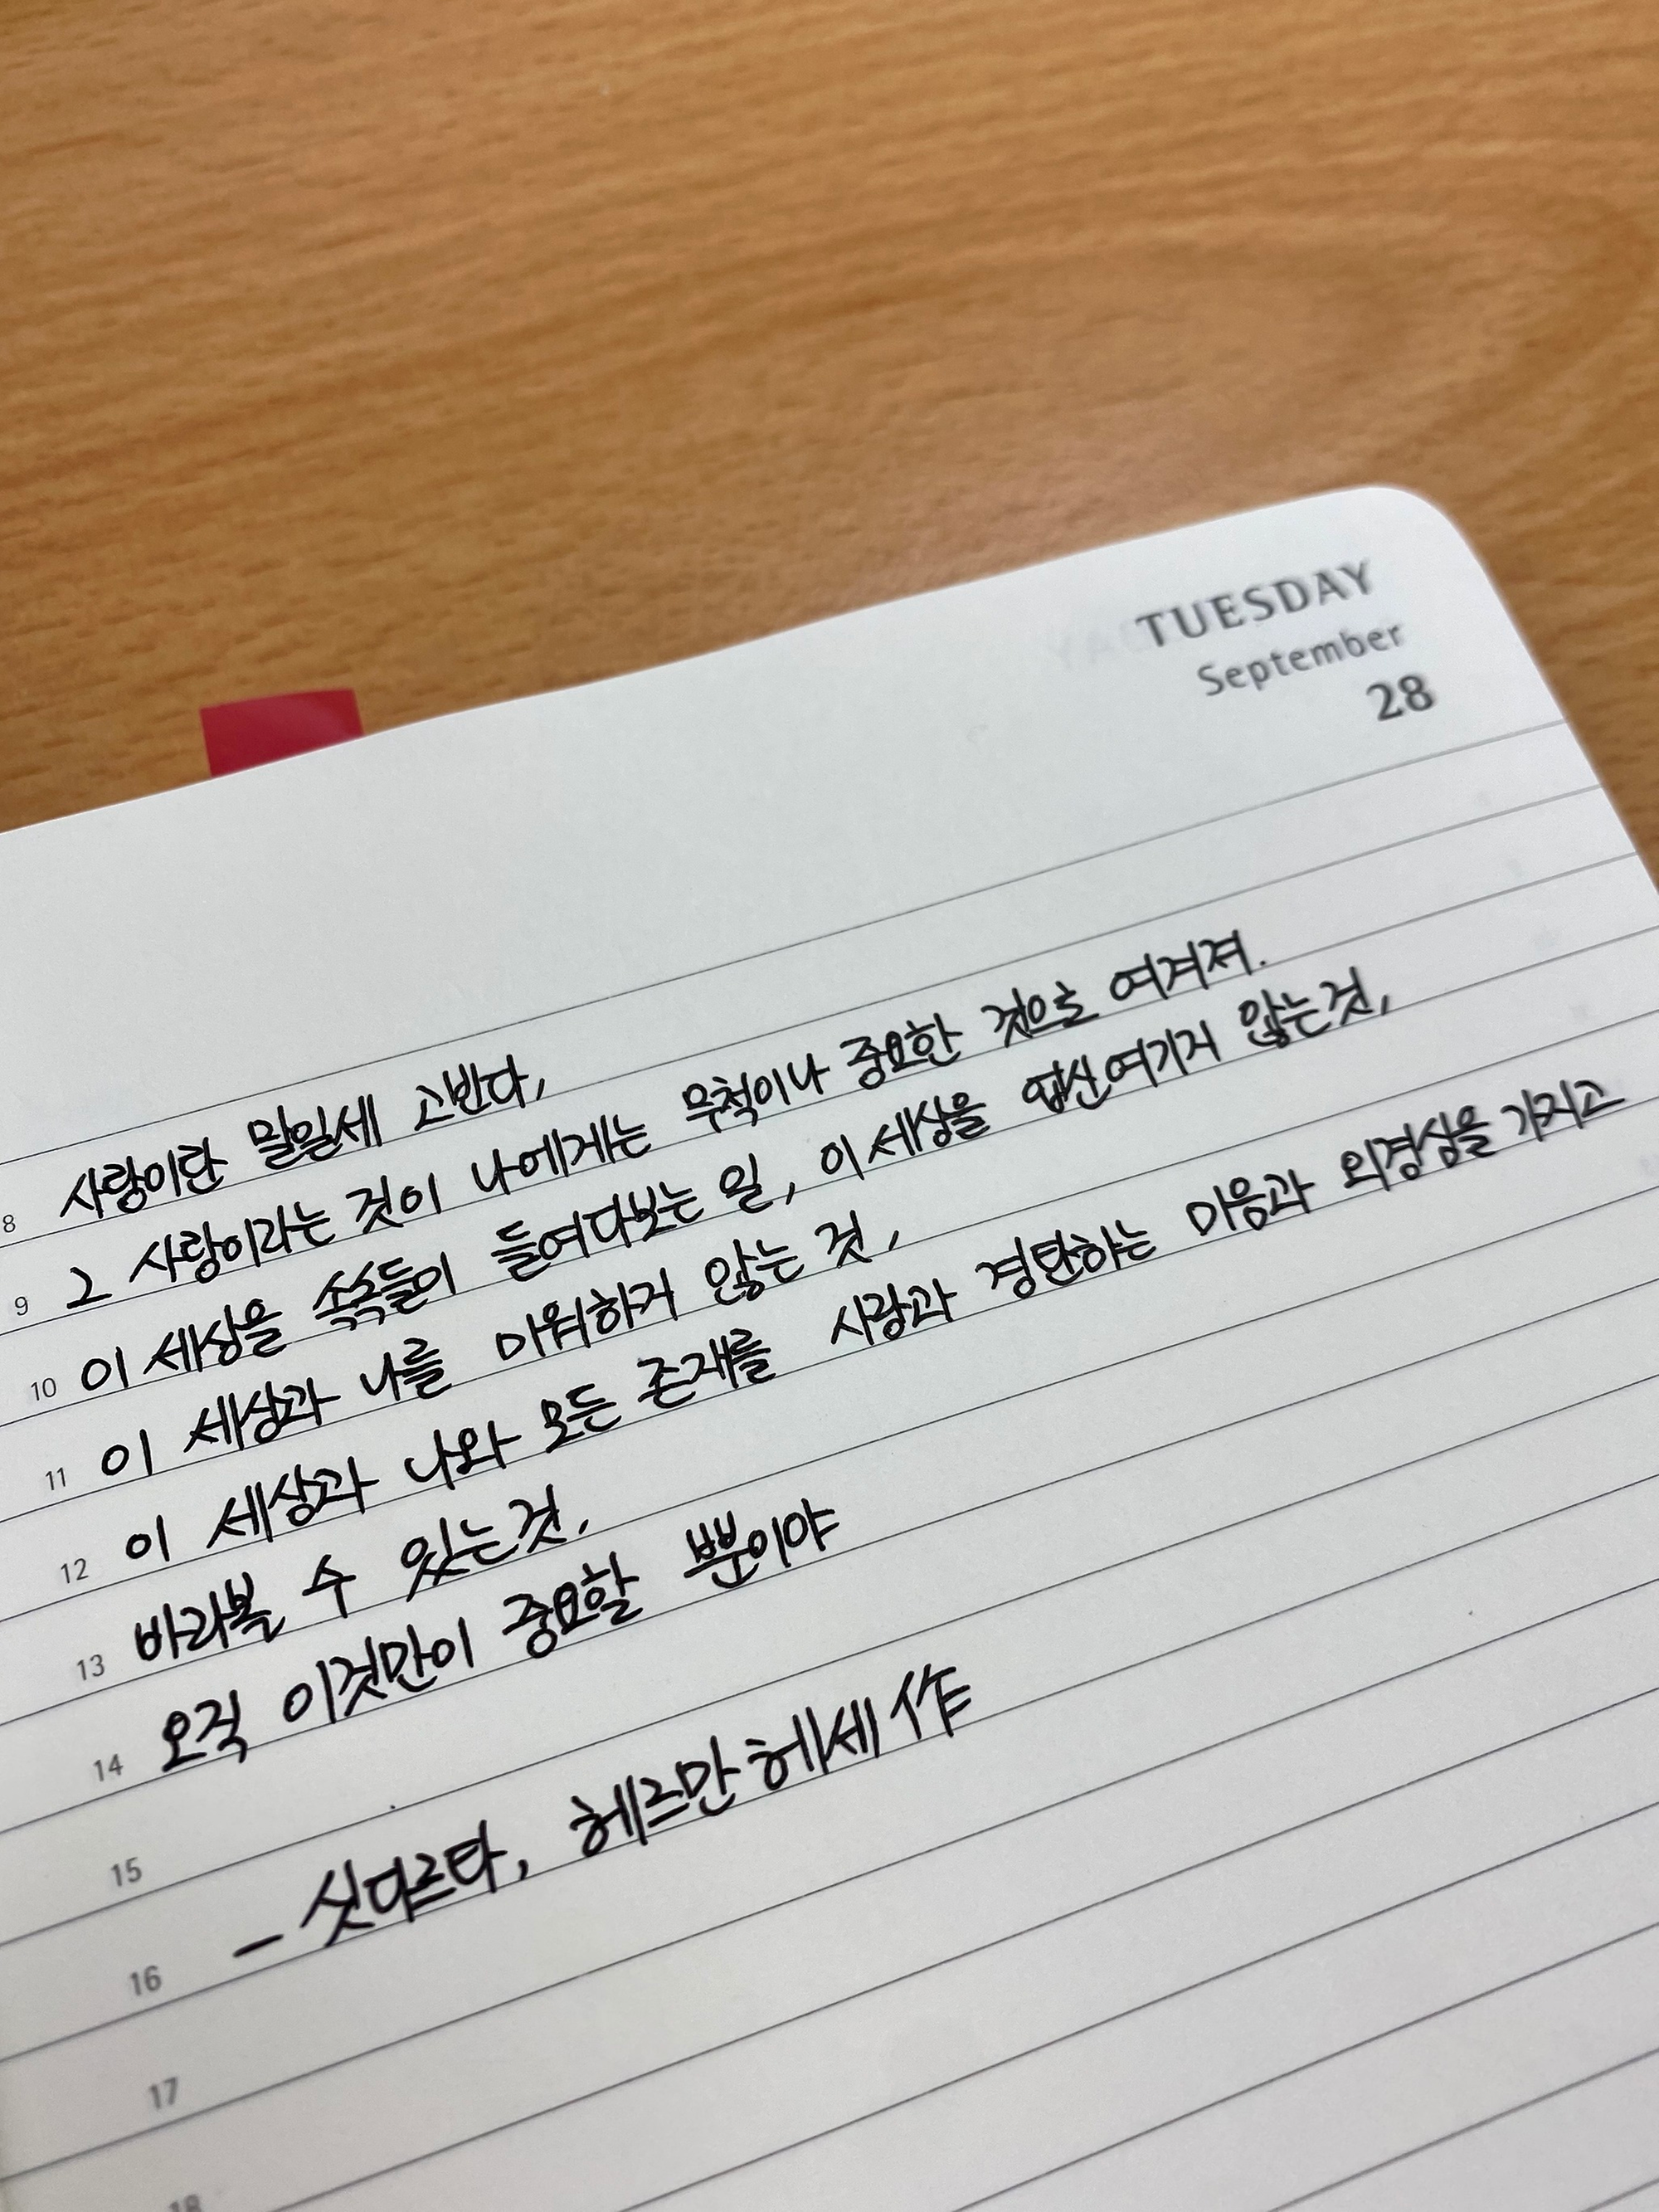 TUESDAY
September
28
8 사랑이란 말일세 고빈다,
9 그 사랑이라는 것이 나에게는 무척이나 중요한 것으로 여겨져.
10 이 세상을 속속들이 들여다보는 일, 이 세상을 업신여기지 않는것,
11 이 세상과 나를 미워하지 않는 것,
12 이 세상과 나와 모든 존재를 사랑과 경탄하는 마음과 외경심을 가지고
13 바라볼 수 있는것,
14 오직 이것만이 중요할 뿐이야
15
16 - 싯다르타, 헤르만헤세 作
17
18